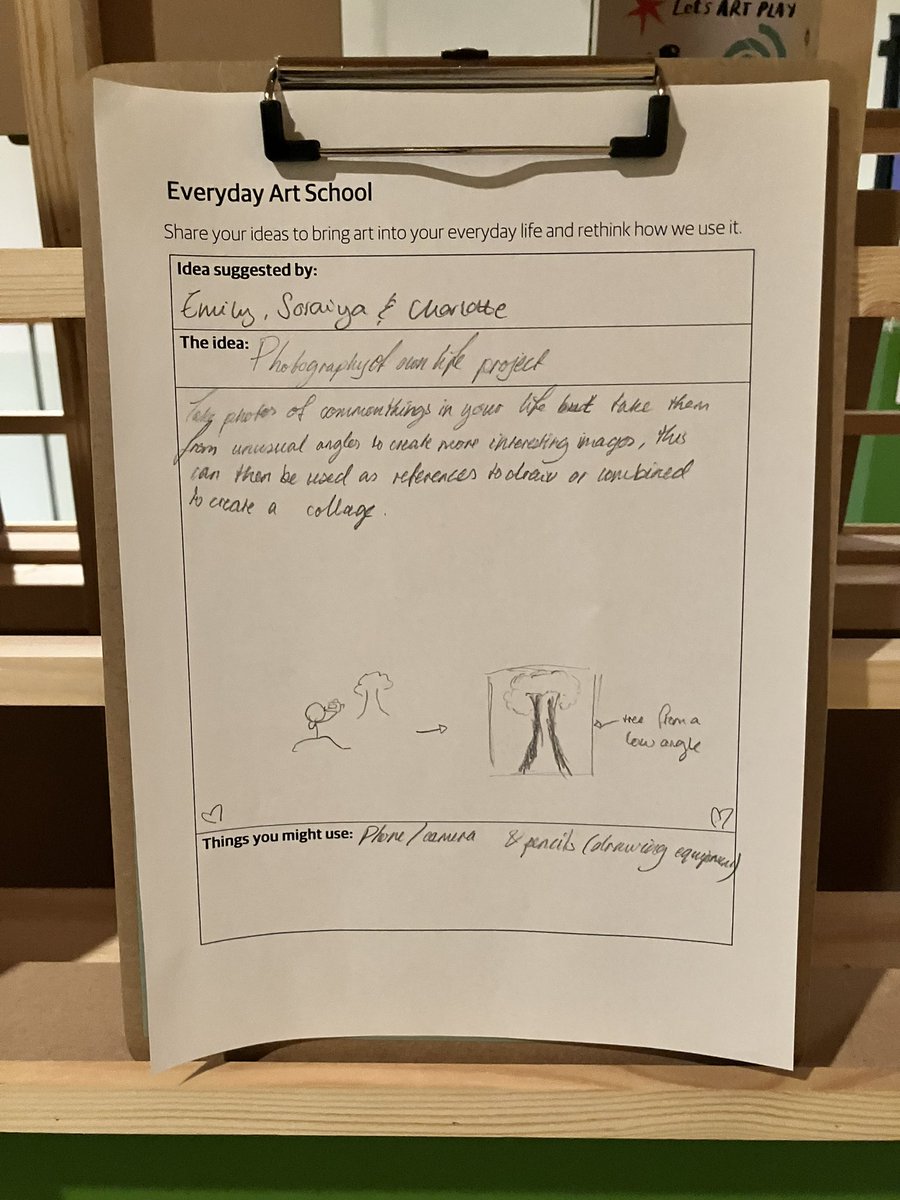 Lets ART PLAY
Everyday Art School
Share your ideas to bring art into your everyday life and rethink how we use it.
Idea suggested by:
Emily, Soraiya & Charlotte
The idea: Photography of own life project
Take photos of common things in your life but take them
from unusual angles to create more interesting images, this
can then be used as references to draw or combined
to create a collage.
tree from a
low angle
Things you might use: Phone/camera & pencils (drawing equipment)